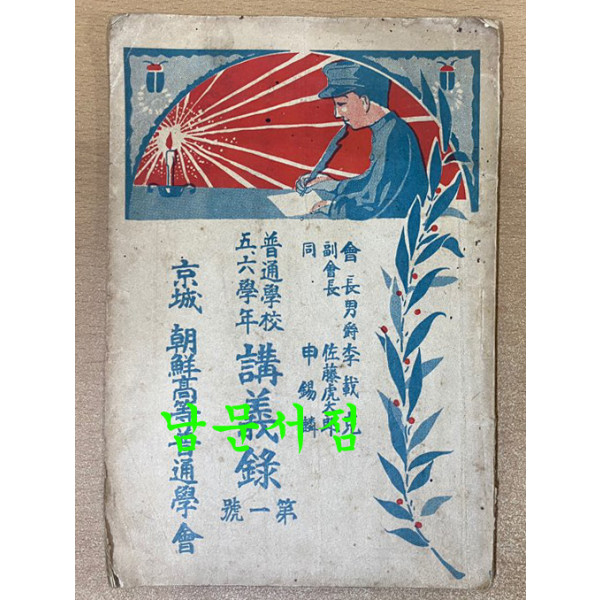 會長男爵 李載克
副會長 佐藤虎太郎
同 申錫麟
普通學校
五、六學年
講義錄
第一號
京城 朝鮮高等普通學會
남문서점